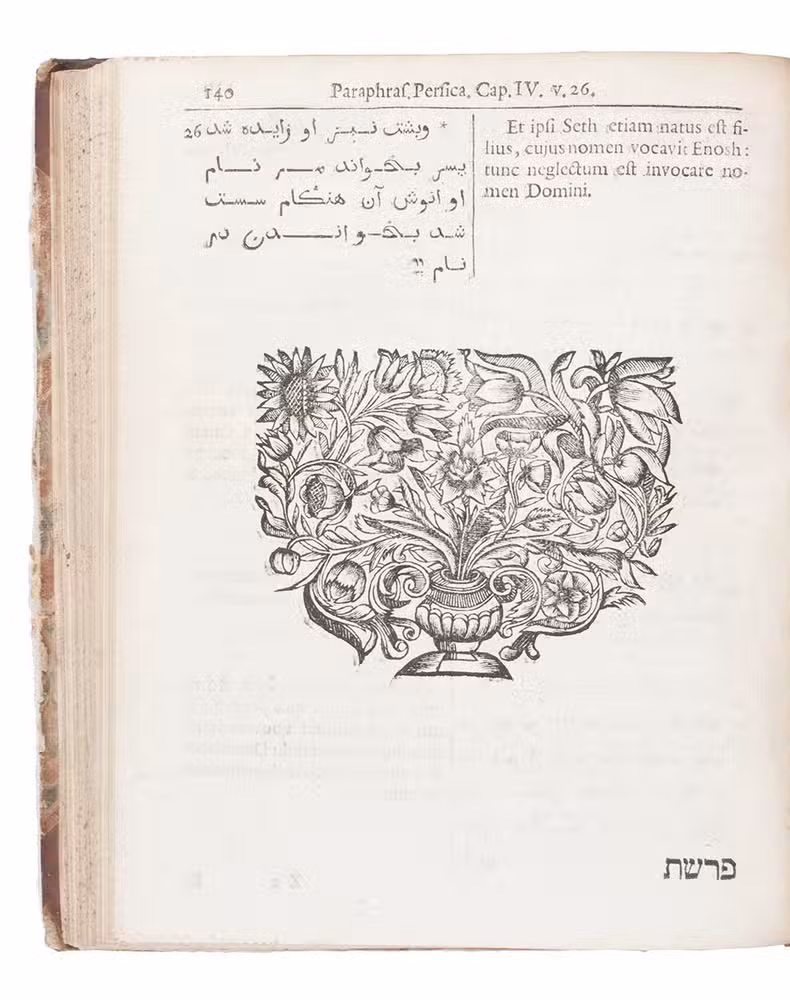 140 Paraphraſ. Perſica. Cap. IV. v. 26.
26 * وبشت نـیـز او زایـده شد
پسر بـخـواند مـر نـام
او انوش آن هنگام سست
شد بـخـوانـدن در
نـام یی
Et ipſi Seth etiam natus eſt fi-
lius, cujus nomen vocavit Enosh:
tunc neglectum eſt invocare no-
men Domini.
פרשת